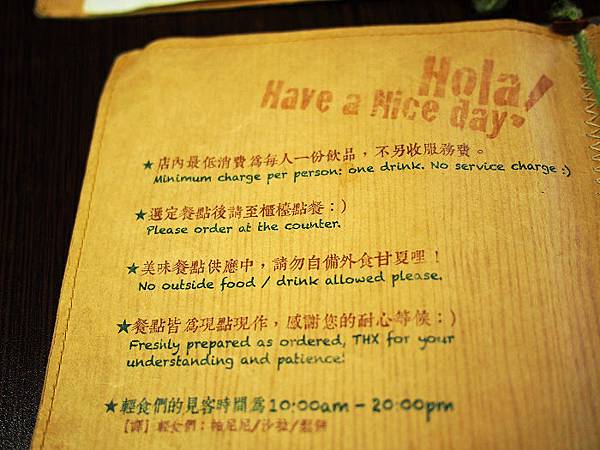 Hola!
Have a Nice day~
★店內最低消費為每人一份飲品，不另收服務費。
Minimum charge per person: one drink. No service charge :)
★選定餐點後請至櫃檯點餐：)
Please order at the counter.
★美味餐點供應中，請勿自備外食甘夏哩！
No outside food / drink allowed please.
★餐點皆為現點現作，感謝您的耐心等候：)
Freshly prepared as ordered, THX for your
understanding and patience!
★輕食們的見客時間為10:00am - 20:00pm
【譯】輕食們：帕尼尼/沙拉/鬆餅